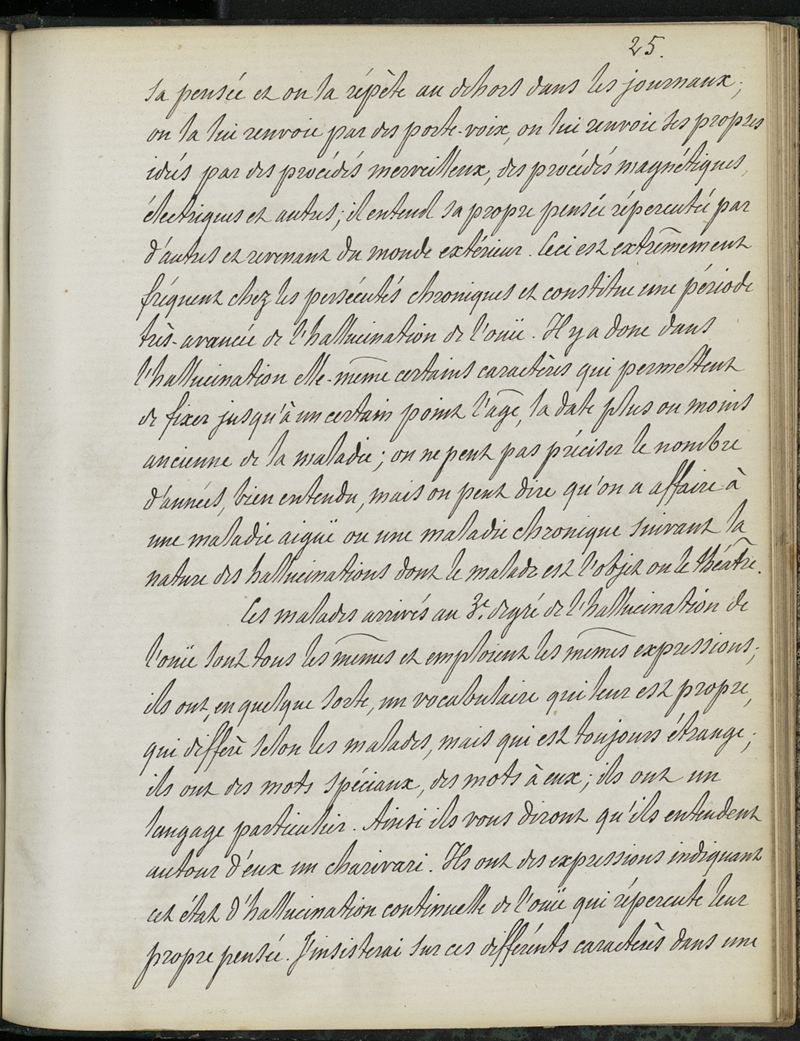 25.
sa pensée et on la répète au dehors dans les journaux;
on la lui renvoie par des porte-voix, on lui renvoie ses propres
idées par des procédés merveilleux, des procédés magnétiques,
électriques et autres; il entend sa propre pensée répercutée par
d'autres et revenant du monde extérieur. Ceci est extrêmement
fréquent chez les persécutés chroniques et constitue une période
très-avancée de l'hallucination de l'ouïe. Il y a donc dans
l'hallucination elle-même certains caractères qui permettent
de fixer jusqu'à un certain point l'âge, la date plus ou moins
ancienne de la maladie; on ne peut pas préciser le nombre
d'années, bien entendu, mais on peut dire qu'on a affaire à
une maladie aiguë ou une maladie chronique suivant la
nature des hallucinations dont le malade est l'objet ou le théâtre.
Ces malades arrivés au 3e. degré de l'hallucination de
l'ouïe sont tous les mêmes et emploient les mêmes expressions;
ils ont, en quelque sorte, un vocabulaire qui leur est propre,
qui diffère selon les malades, mais qui est toujours étrange;
ils ont des mots spéciaux, des mots à eux; ils ont un
langage particulier. Ainsi ils vous diront qu'ils entendent
autour d'eux un charivari. Ils ont des expressions indiquant
cet état d'hallucination continuelle de l'ouïe qui répercute leur
propre pensée. J'insisterai sur ces différents caractères dans une